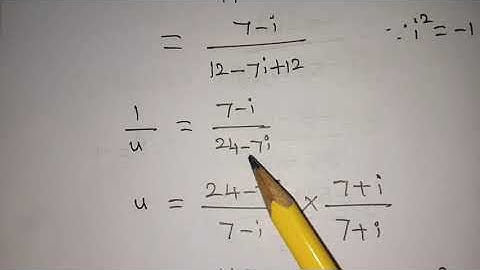 = 7-i / 12-7i+12 ∵ i² = -1
1/u = 7-i / 24-7i
u = 24- / 7-i × 7+i / 7+i